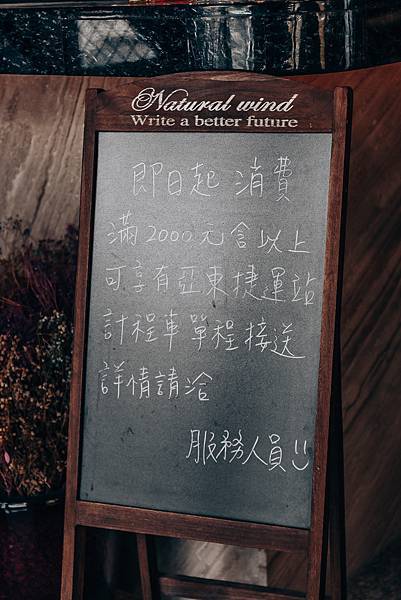 Natural wind
Write a better future
即日起 消費
滿2000元含以上
可享有亞東捷運站
計程車單程接送
詳情請洽
服務人員